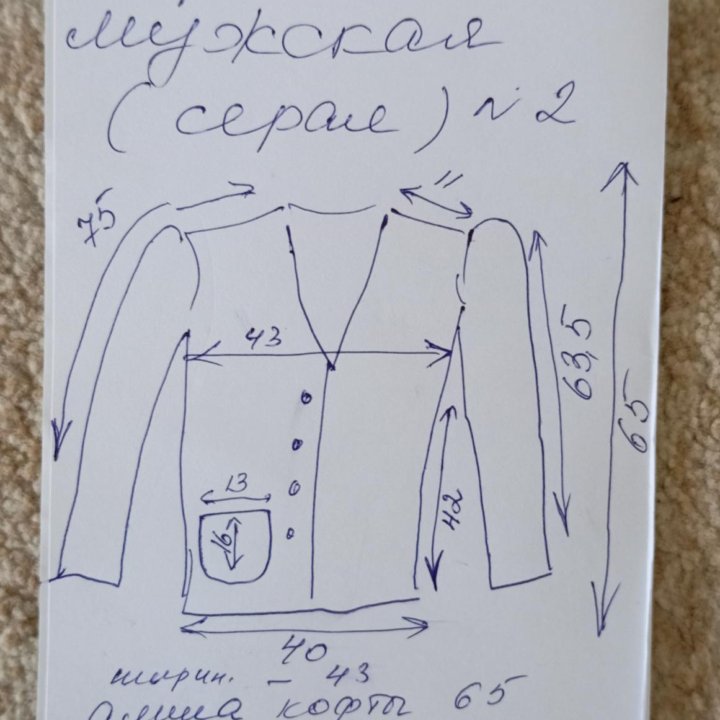 мужская
(серая) N 2
75
11
43
63,5
65
13
16
42
40
ширин. – 43
длина кофты 65